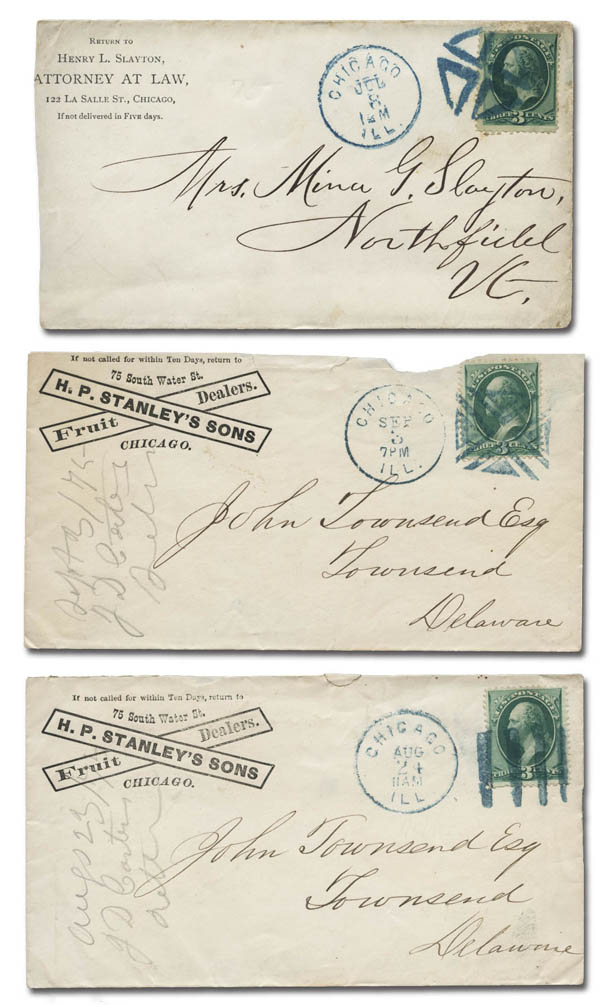 RETURN TO
HENRY L. SLAYTON,
ATTORNEY AT LAW,
122 LA SALLE ST., CHICAGO,
If not delivered in FIVE days.
CHICAGO
JUL
8
12M
ILL.
U.S. POSTAGE
THREE 3 CENTS
Mrs. Mina G. Slayton,
Northfield
Vt.
If not called for within Ten Days, return to
75 South Water St.
H. P. STANLEY'S SONS
Fruit Dealers.
CHICAGO.
CHICAGO
SEP
3
7PM
ILL.
U.S. POSTAGE
THREE 3 CENTS
John Townsend Esq
Townsend
Delaware
Sept 3/75
J D Carter
If not called for within Ten Days, return to
75 South Water St.
H. P. STANLEY'S SONS
Fruit Dealers.
CHICAGO.
CHICAGO
AUG
24
11AM
ILL
U.S. POSTAGE
THREE 3 CENTS
John Townsend Esq
Townsend
Delaware
J D Carter
letter